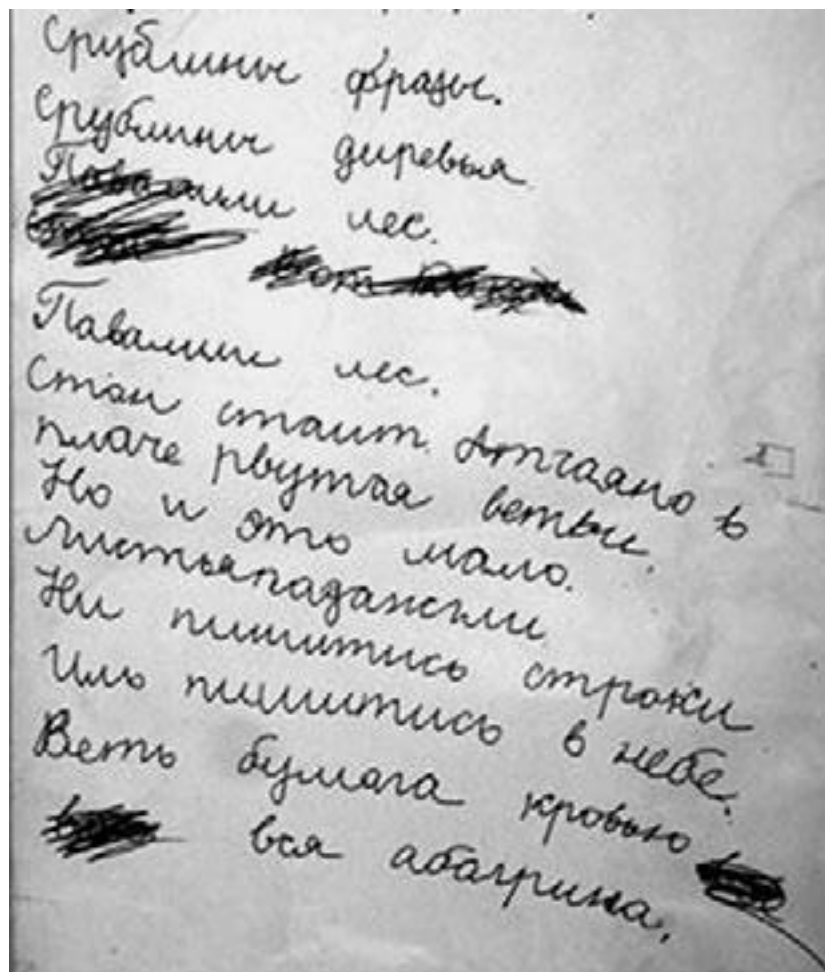 Срублины фразы.
Срублины диревья
Павалили лес.
Павалили лес.
Стон стаит. Атчаяно в
плаче рвутчя ветьви.
Но и это мало.
Ни пишитись строки
Иль пишитись в небе.
Веть бумага кровью
вся абагрина.